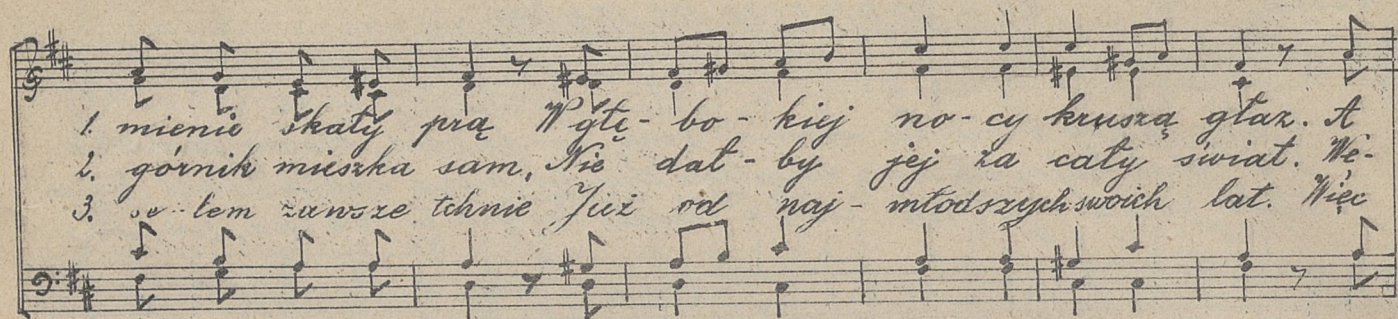 1. mienie skały prą W głę- bo- kiej no-cy kruszą głaz. A
2. górnik mieszka sam, Nie dał-by jej za cały świat. We-
3. se-lem zawsze tchnie Już od naj-młodszych swoich lat. Więc